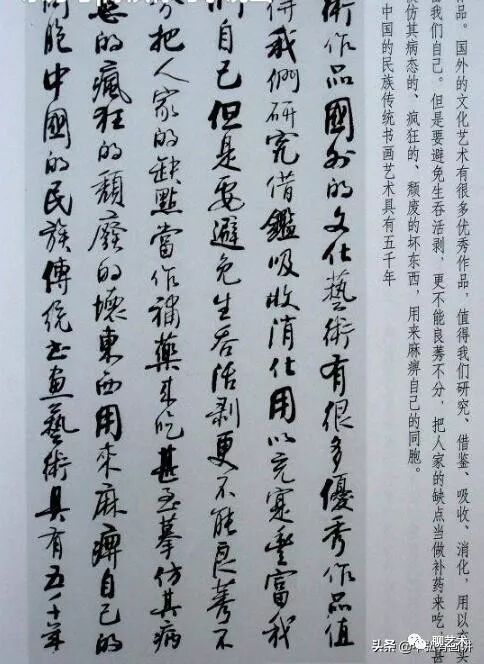 作品。国外的文化艺术有很多优秀作品，值得我们研究、借鉴、吸收、消化，用以
富我们自己。但是要避免生吞活剥，更不能良莠不分，把人家的缺点当做补药来吃，甚
仿其病态的、疯狂的、颓废的坏东西，用来麻痹自己的同胞。
中国的民族传统书画艺术具有五千年
術作品國外的文化藝術有很多優秀作品值
得我們研究借鑑吸收消化用以充寔豐富我
們自己但是要避免生吞活剥更不能良莠不
分把人家的缺點當作補藥來吃甚至摹仿其病
態的瘋狂的頹廢的壞東西用來麻痹自己的
同胞中國的民族傳統书画藝術具有五千年
聊艺术
头条